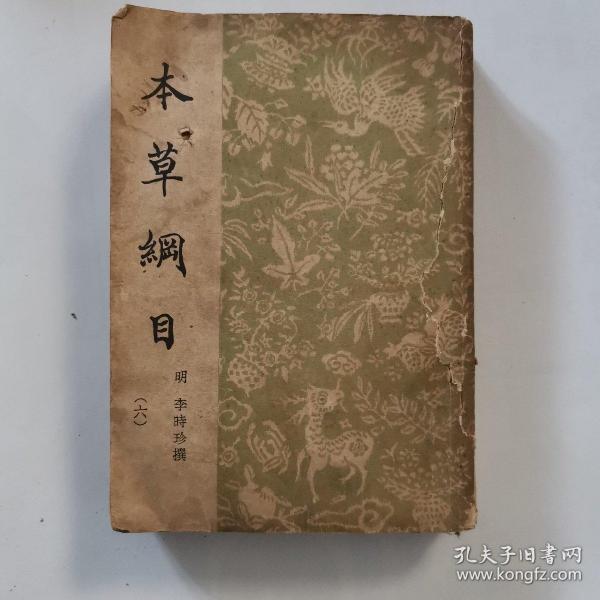 本草綱目
明 李時珍撰
(六)
孔夫子旧書网
www.kongfz.com